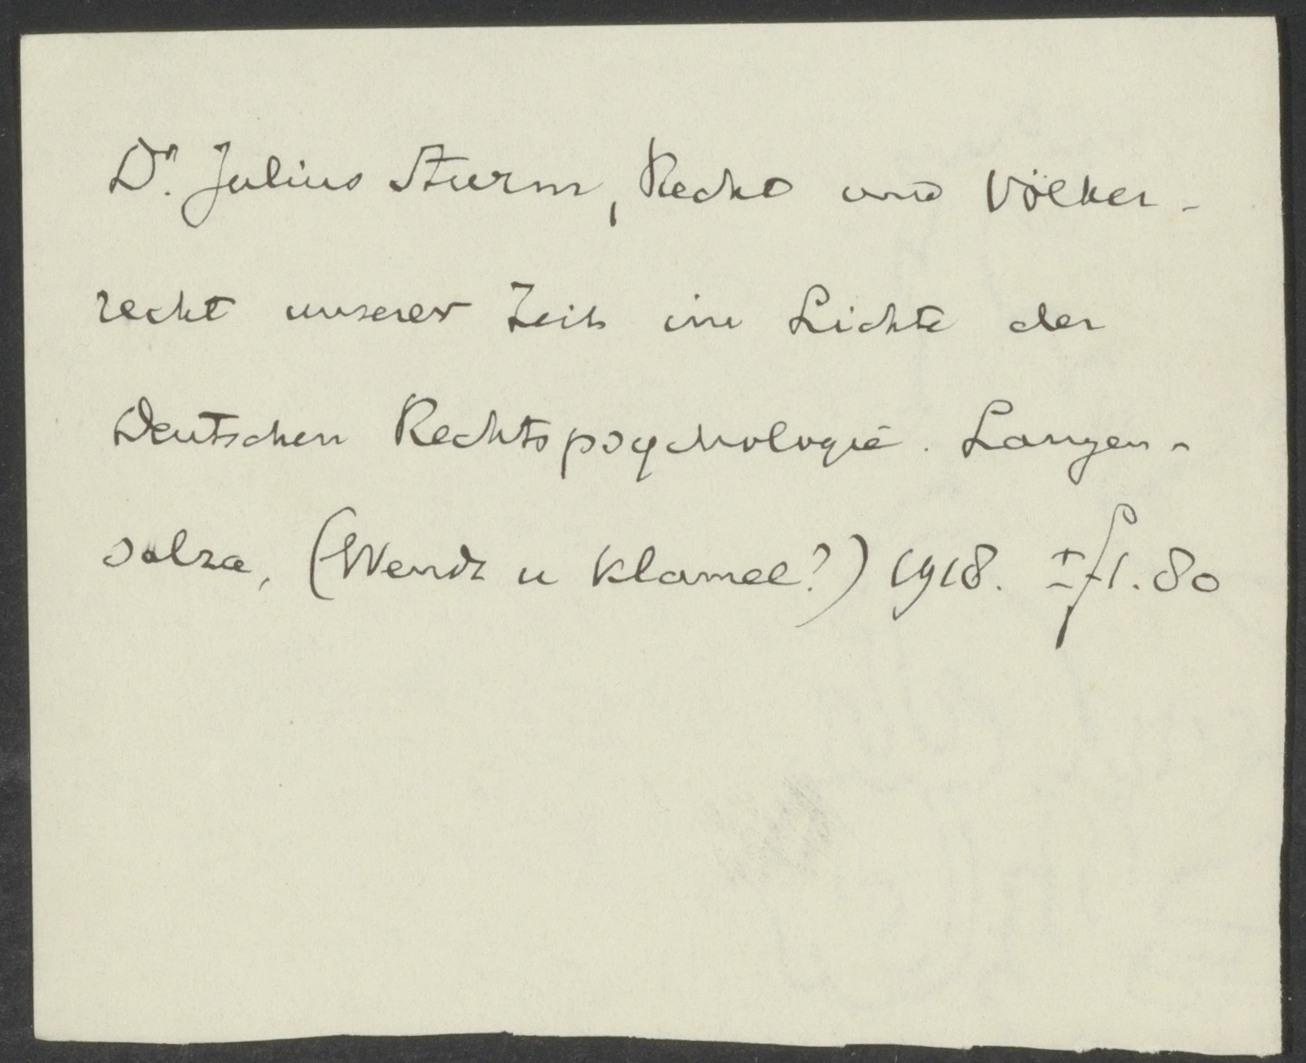 Dr. Julius Sturm, Recht und Völker-
recht unserer Zeit im Lichte der
Deutschen Rechtspsychologie. Langen-
salza, (Wendt u Klamel?) 1918. ± ƒ1.80